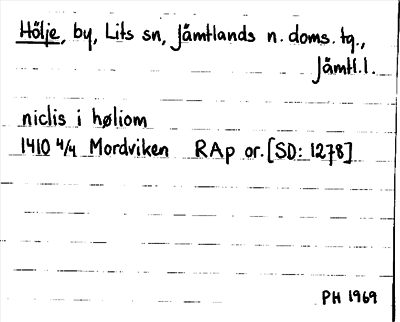 Hölje, by, Lits sn, Jämtlands n. doms. tg.,
Jämtl. l.
niclis i høliom
1410 4/4 Mordviken RAp or. [SD: 1278]
PH 1969